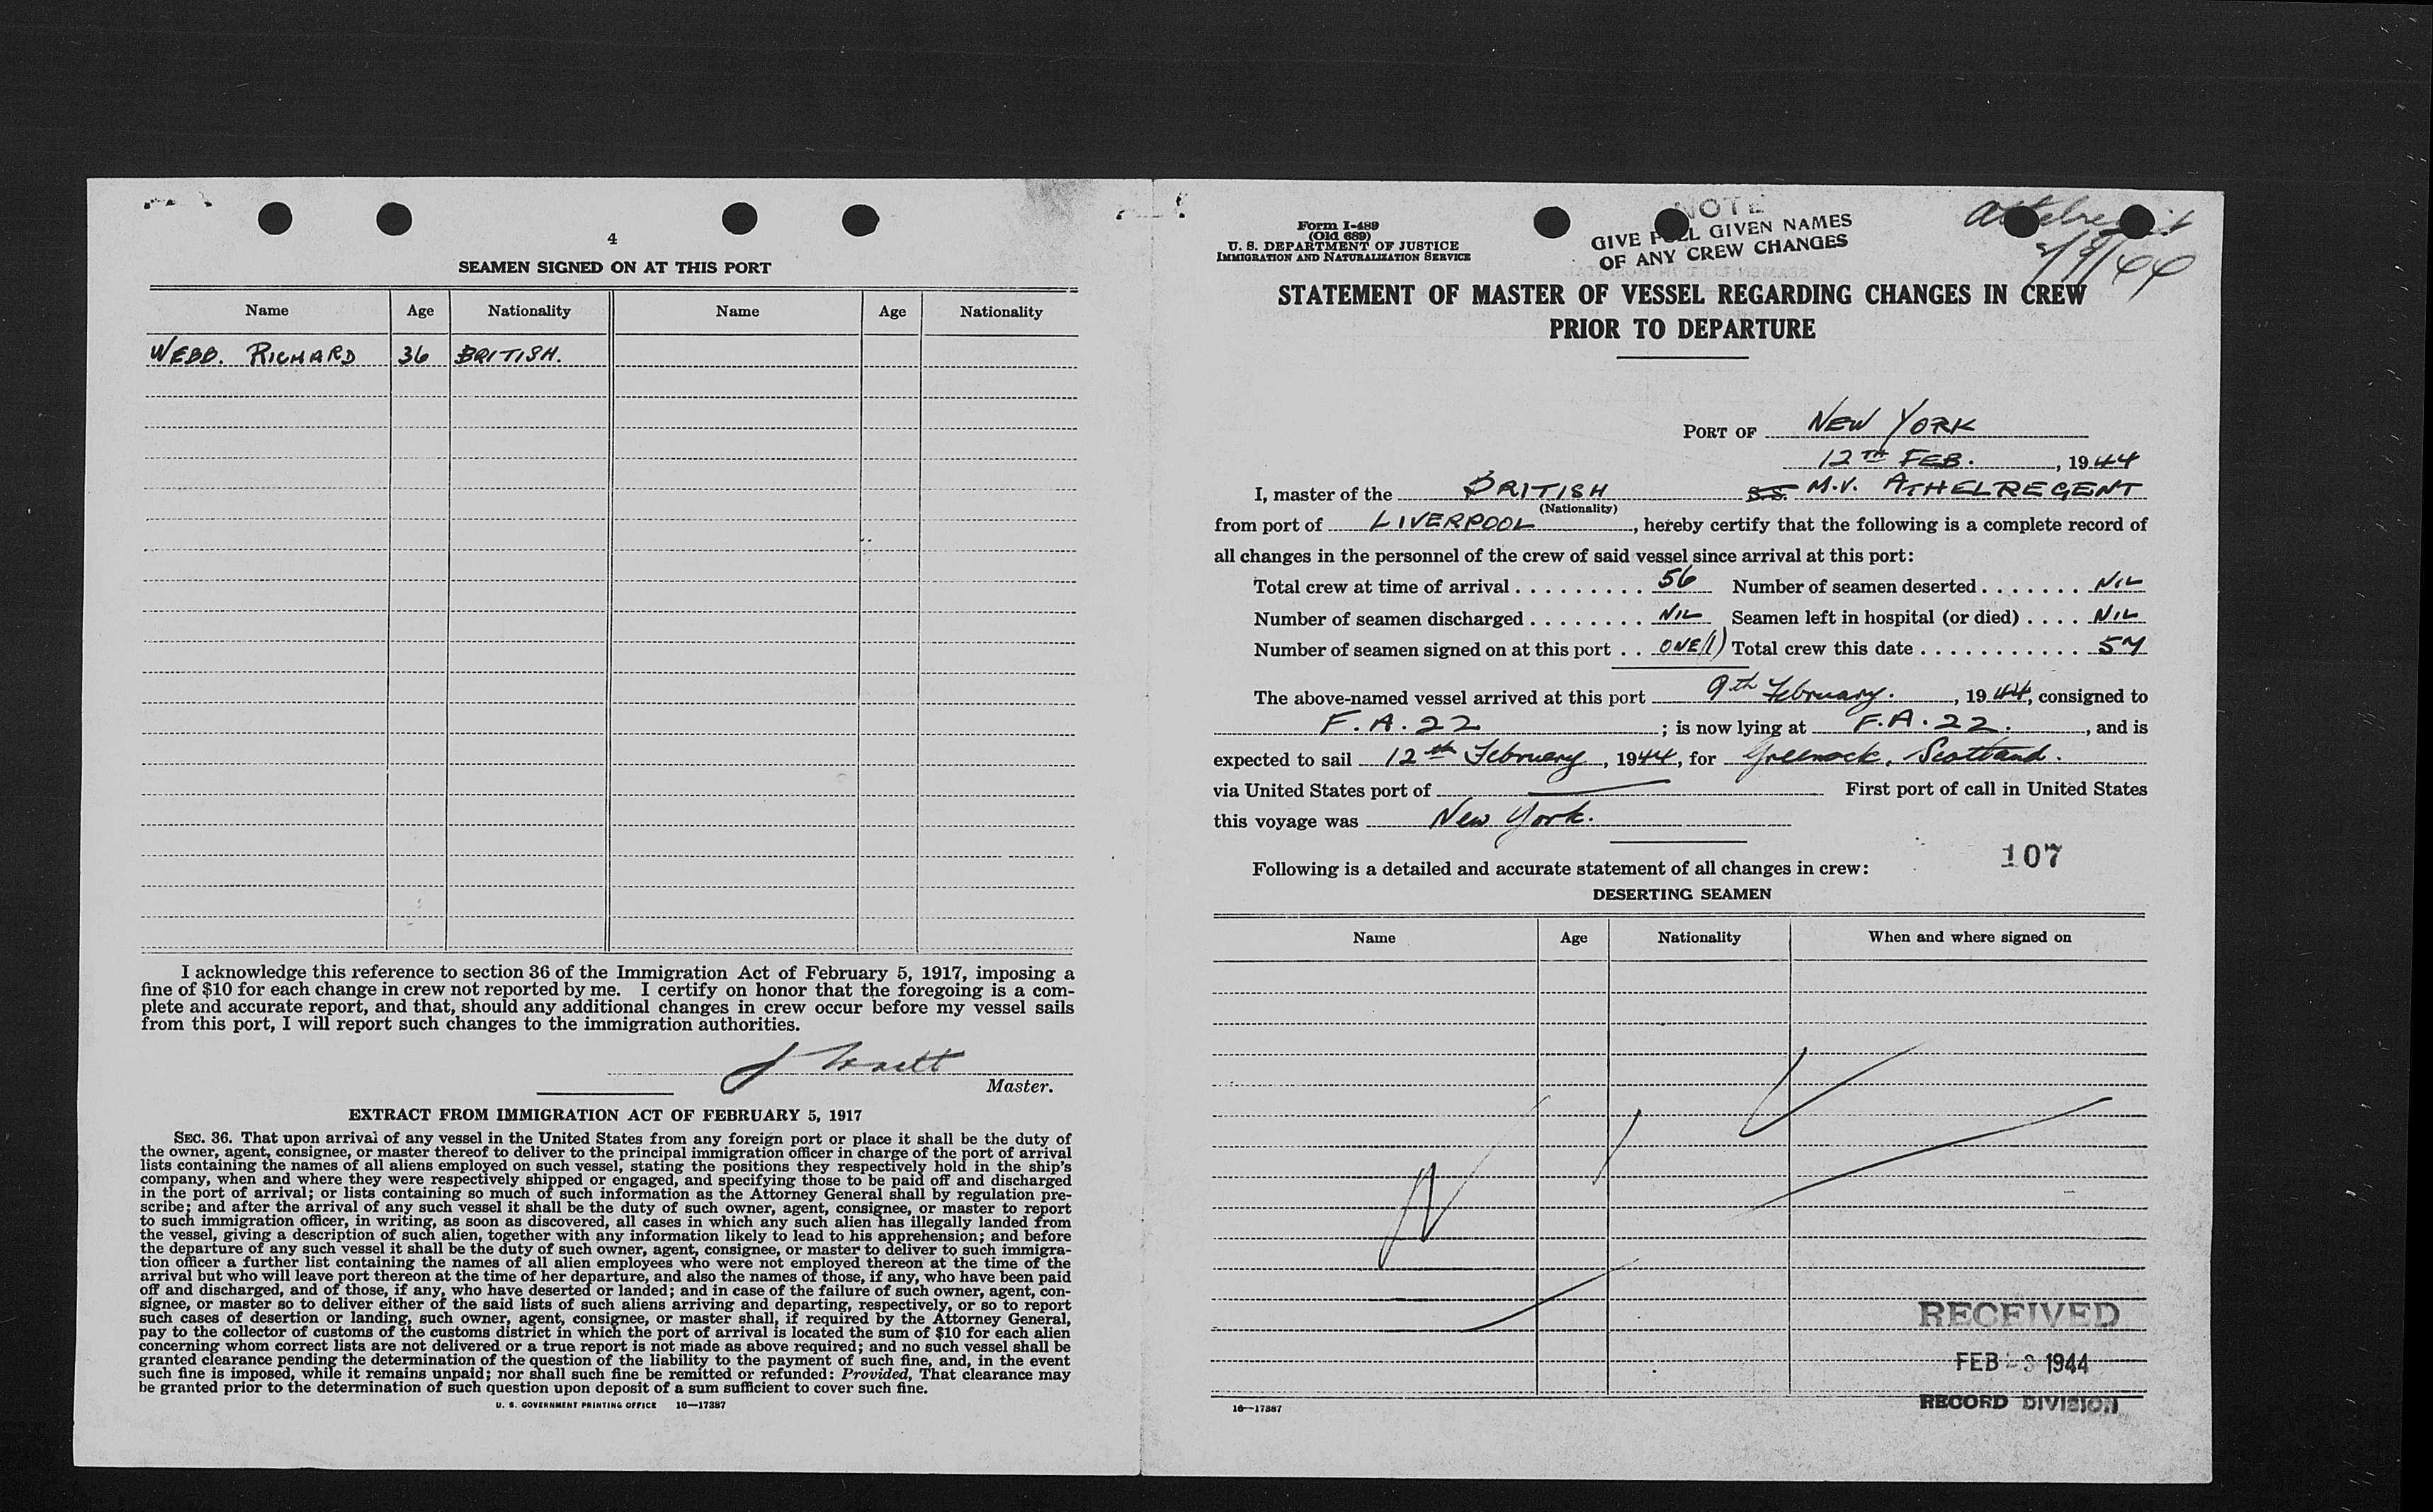 4
SEAMEN SIGNED ON AT THIS PORT
Name Age Nationality Name Age Nationality
WEBB. RICHARD 36 BRITISH.
I acknowledge this reference to section 36 of the Immigration Act of February 5, 1917, imposing a
fine of $10 for each change in crew not reported by me. I certify on honor that the foregoing is a com-
plete and accurate report, and that, should any additional changes in crew occur before my vessel sails
from this port, I will report such changes to the immigration authorities.
J
Master.
EXTRACT FROM IMMIGRATION ACT OF FEBRUARY 5, 1917
SEC. 36. That upon arrival of any vessel in the United States from any foreign port or place it shall be the duty of
the owner, agent, consignee, or master thereof to deliver to the principal immigration officer in charge of the port of arrival
lists containing the names of all aliens employed on such vessel, stating the positions they respectively hold in the ship's
company, when and where they were respectively shipped or engaged, and specifying those to be paid off and discharged
in the port of arrival; or lists containing so much of such information as the Attorney General shall by regulation pre-
scribe; and after the arrival of any such vessel it shall be the duty of such owner, agent, consignee, or master to report
to such immigration officer, in writing, as soon as discovered, all cases in which any such alien has illegally landed from
the vessel, giving a description of such alien, together with any information likely to lead to his apprehension; and before
the departure of any such vessel it shall be the duty of such owner, agent, consignee, or master to deliver to such immigra-
tion officer a further list containing the names of all alien employees who were not employed thereon at the time of the
arrival but who will leave port thereon at the time of her departure, and also the names of those, if any, who have been paid
off and discharged, and of those, if any, who have deserted or landed; and in case of the failure of such owner, agent, con-
signee, or master so to deliver either of the said lists of such aliens arriving and departing, respectively, or so to report
such cases of desertion or landing, such owner, agent, consignee, or master shall, if required by the Attorney General,
pay to the collector of customs of the customs district in which the port of arrival is located the sum of $10 for each alien
concerning whom correct lists are not delivered or a true report is not made as above required; and no such vessel shall be
granted clearance pending the determination of the question of the liability to the payment of such fine, and, in the event
such fine is imposed, while it remains unpaid; nor shall such fine be remitted or refunded: Provided, That clearance may
be granted prior to the determination of such question upon deposit of a sum sufficient to cover such fine.
U. S. GOVERNMENT PRINTING OFFICE 16—17387
Form I-489
(Old 689)
U. S. DEPARTMENT OF JUSTICE
IMMIGRATION AND NATURALIZATION SERVICE
NOTE
GIVE FULL GIVEN NAMES
OF ANY CREW CHANGES
2/9/44
STATEMENT OF MASTER OF VESSEL REGARDING CHANGES IN CREW
PRIOR TO DEPARTURE
PORT OF NEW YORK
12TH FEB., 1944
I, master of the BRITISH S.S. M.V. ATHELREGENT
(Nationality)
from port of LIVERPOOL, hereby certify that the following is a complete record of
all changes in the personnel of the crew of said vessel since arrival at this port:
Total crew at time of arrival . . . . . . . . . 56 Number of seamen deserted . . . . . . . NIL
Number of seamen discharged . . . . . . . . NIL Seamen left in hospital (or died) . . . . NIL
Number of seamen signed on at this port . . ONE(1) Total crew this date . . . . . . . . . . . 57
The above-named vessel arrived at this port 9th February., 1944, consigned to
F.A.22; is now lying at F.A.22., and is
expected to sail 12th February, 1944, for Greenock, Scotland.
via United States port of — First port of call in United States
this voyage was New York.
107
Following is a detailed and accurate statement of all changes in crew:
DESERTING SEAMEN
Name Age Nationality When and where signed on
N I L
RECEIVED
FEB 1944
RECORD DIVISION
16—17387